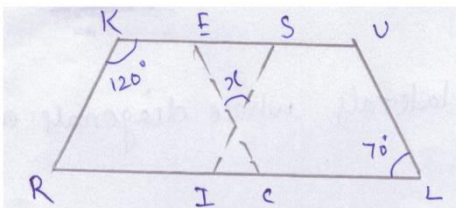 K E S U
120°
x
70°
R I C L